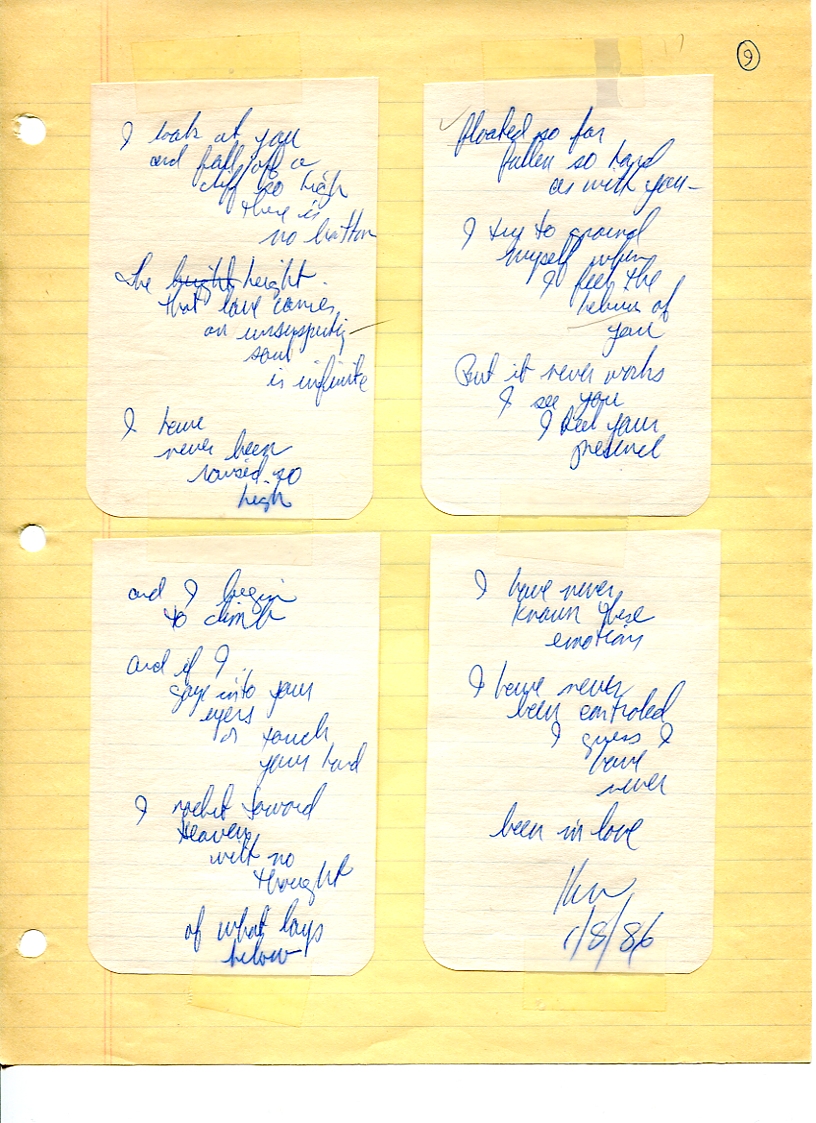 9
I look at you
and fall off a
cliff so high
there is
no bottom
the height
that love carries
an unsuspecting
soul
is infinite
I have
never been
raised so
high
floated so far
fallen so hard
as with you—
I try to ground
myself when
I feel the
of
you
But it never works
I see you
I feel your
presence
and I begin
to climb
and if I
gaze into your
eyes
or touch
your hand
I rocket toward
Heaven
with no
thought
of what lays
below
I have never
known these
emotions
I have never
been controled
I guess I
have
never
been in love
Ken
1/8/86